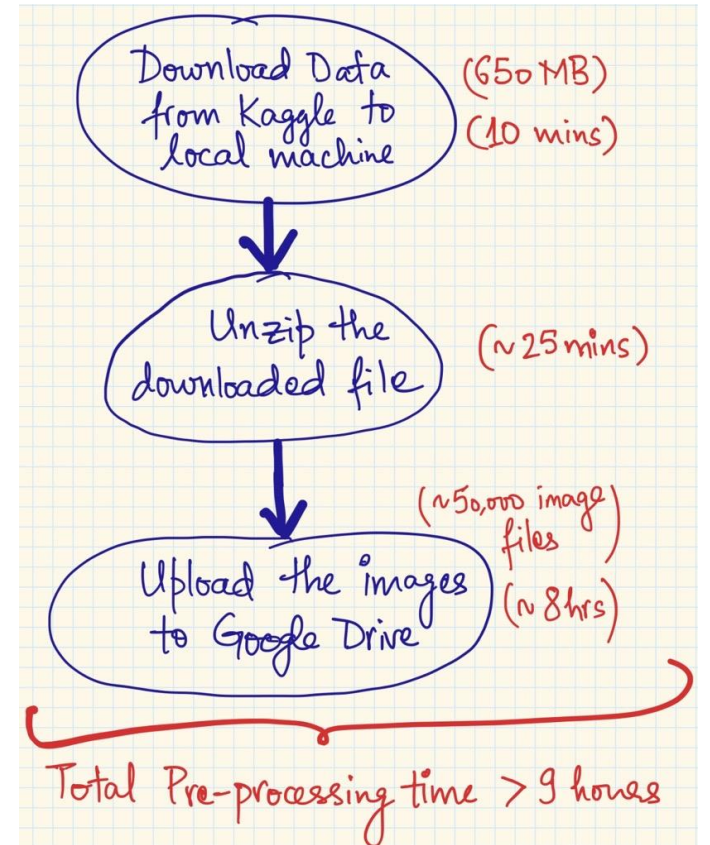 Download Data
from Kaggle to
local machine
(650 MB)
(10 mins)
Unzip the
downloaded file
(~25 mins)
(~50,000 image
files)
Upload the images
to Google Drive
(~8hrs)
Total Pre-processing time > 9 hours